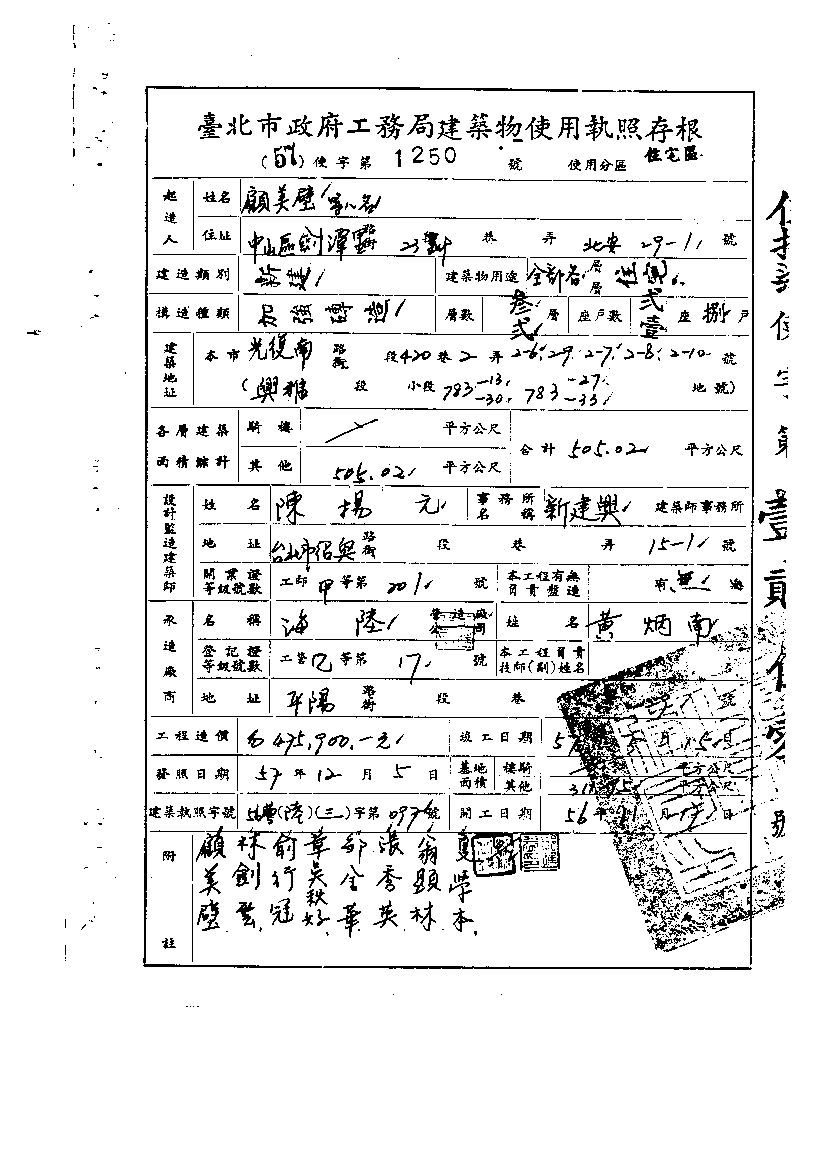 臺北市政府工務局建築物使用執照存根
(57)使字第 1250 號 使用分區 住宅區
起造人 姓名 顧美壁 等八名
住址 中山區劍潭路 巷 弄 北安 29-1 號
建造類別 新建 建築物用途 全部各層 住宅
構造種類 加強磚造 層數 叁 貳 層 座戶數 貳 壹 座 捌 戶
建築地址 本市 光復南 路街 段 420 巷 2 弄 2-6, 2-9, 2-7, 2-8, 2-10 號
(興雅 段 小段 783-13, -30, 783-27, -33, 地號)
各層建築面積總計 騎樓 平方公尺 合計 505.02 平方公尺
其他 505.02 平方公尺
設計監造建築師 姓名 陳揚元 事務所名稱 新建興 建築師事務所
地址 台北市紹興 路街 段 巷 弄 15-1 號
開業證等級號數 工部 甲 等第 201 號 本工程有無負責監造 有 無
承造廠商 名稱 海陸 營造廠公司 姓名 黃炳南
登記證等級號數 工營 乙 等第 17 號 本工程負責技師(副)姓名 名
地址 平陽 路街 段 巷 號
工程造價 475,900.-元 竣工日期 57 月 15 日
發照日期 57 年 12 月 5 日 基地面積 樓騎 平方公尺
其他 平方公尺
建築執照字號 (陸)(三)字第 號 開工日期 56 年 11 月 日
附註 顧美壁 林劍雲 俞行冠 章吳秋好 邵全華 張秀英 翁顯林
使字第壹貳伍零號